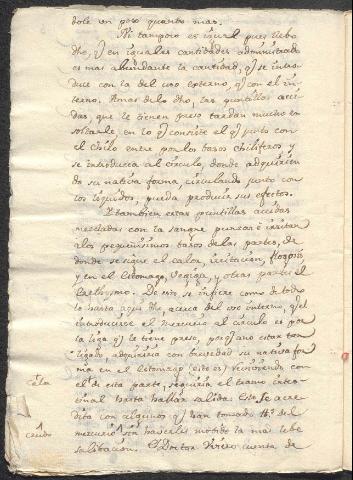 dole un poco quanto mas.
Ni tampoco es igual pues llebo
dho, q̃ en iguales cantidades administrado
es mas abundante la cantidad, q̃ se intro
duce con la del uso externo, q̃ con el in
terno. Amas de lo dho, las puntillas acci
das, que le tienen preso tardan mucho en
soltarle, en lo q̃ consiste el q̃ junto con
el chilo entre por los basos chiliferos y
se introdusca al circulo, donde adquirien
do su nativa forma, circulando junto con
los liquidos, pueda producir sus efectos.
Y tambien estas puntillas accidas
mezcladas con la sangre punzan è irritan
alos pequeñisimos basos de las partes, de
donde se sigue el calor, irritacion, flogosis
y en el estomago, Vegiga, y otras partes el
De esto se infiere como de todo
lo hasta aqui dho, acerca del uso interno, q̃ el
introducirse el Mercurio al circulo es por
la liga q̃ le tiene preso, porq̃ a no estar tan
ligado adquiriria con brevedad su nativa for
ma en el estomago (esto es) reuniendose con
el de esta parte, seguiria el tramo intes
tinal hasta hallar salida. Esto se acre
dita con algunos q̃ han tomado del
mercurio sin haverles mobido la mas lebe
salibacion. El Doctor cuenta de